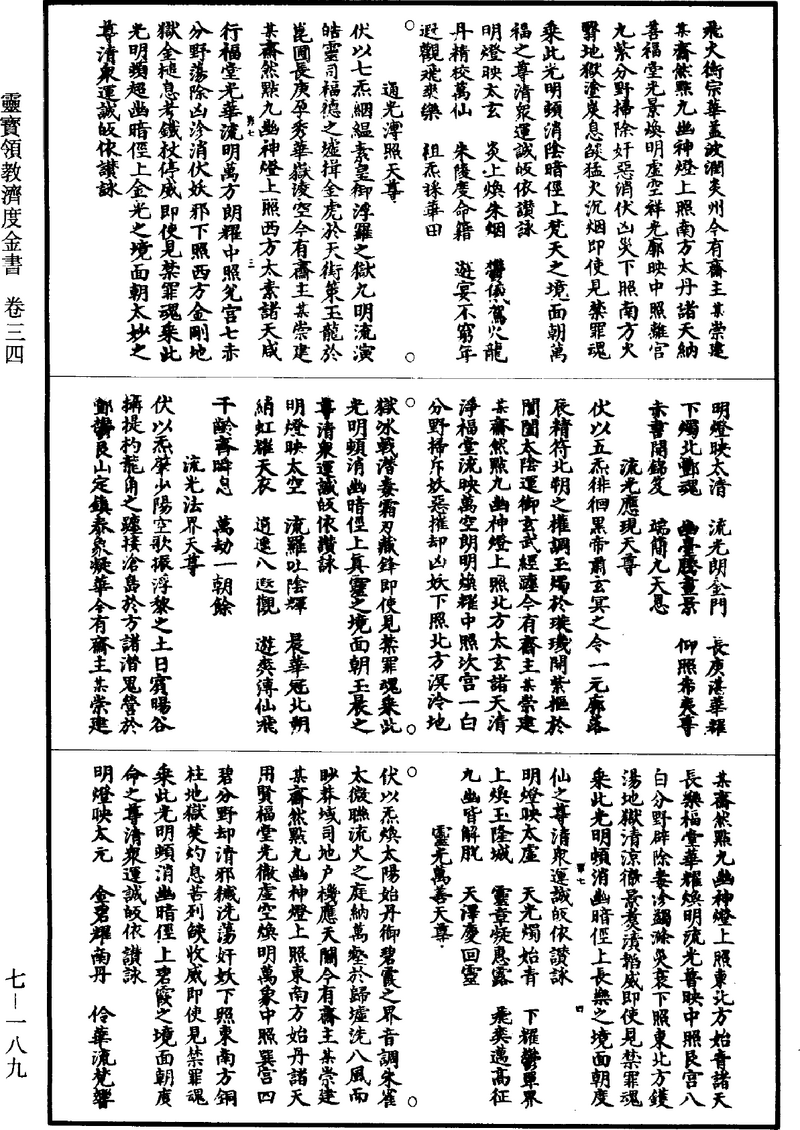 飛火衡宗華蓋波潤炎州今有齋主某崇建
某齋然點九幽神燈上照南方太丹諸天納
善福堂光景煥明虛空祥光廓映中照離宮
九紫分野掃除奸惡消伏凶災下照南方火
翳地獄塗炭息燄猛火沉烟即使見禁罪魂
乘此光明頓消陰暗徑上梵天之境面朝萬
福之尊清衆運誠皈依讃詠
明燈映太玄 炎上煥朱烟 鬱儀駕火龍
丹精校萬仙 朱陵度命籍 遊宴不窮年
遐觀飛爽樂 徂炁採華田
通光溥照天尊
伏以七炁絪縕素皇御浮羅之嶽九明流演
皓靈司福德之墟揖金虎於天街策玉龍於
崑圃長庚孕秀華嶽淩空今有齋主某崇建
某齋然點九幽神燈上照西方太素諸天咸
行福堂光華流明萬方朗耀中照兊宮七赤
分野蕩除凶沴消伏妖邪下照西方金剛地
獄金槌息考鐵杖停威即使見禁罪魂乘此
光明頓超幽暗徑上金光之境面朝太妙之
尊清衆運誠皈依讃詠
明燈映太清 流光朗金門 長庚湛華耀
下燭北酆魂 幽臺睹晝景 仰照希夷尊
赤書開錦笈 端簡九天恩
流光應現天尊
伏以五炁徘徊黑帝肅玄冥之令一元廓落
辰精符北朔之權調玉燭於璇璣開紫樞於
閶闔太陰運御玄武經躔今有齋主某崇建
某齋然點九幽神燈上照北方太玄諸天清
淨福堂流映萬空朗明煥耀中照坎宮一白
分野掃斥妖惡摧却凶妖下照北方溟泠地
獄冰戟潛毒霜刃藏鋒即使見禁罪魂乘此
光明頓消幽暗徑上真靈之境面朝玉晨之
尊清衆運誠皈依讃詠
明燈映太空 流羅吐陰輝 晨華冠北朔
絳虹耀天衣 逍遥八遐觀 遊爽溥仙飛
千齡齊瞬息 萬劫一朝餘
流光法界天尊
伏以炁肇少陽空歌振浮黎之土日賓暘谷
攝提杓龍角之躔接滄島於方諸潛鬼營於
酆鬱艮山定鎮泰象凝華今有齋主某崇建
某齋然點九幽神燈上照東北方始青諸天
長樂福堂華耀煥明流光普映中照艮宮八
白分野辟除毒沴蠲滌災衰下照東北方鑊
湯地獄清涼徹景煑漬韜威即使見禁罪魂
乘此光明頓消幽暗徑上長樂之境面朝度
仙之尊清衆運誠皈依讃詠
明燈映太虛 天光燭始青 下耀鬱單界
上煥玉隆城 靈章凝惠露 飛奕邁高征
九幽皆解脫 天澤慶回靈
靈光萬善天尊
伏以炁煥太陽始丹御碧霞之界音調朱雀
太微聯流火之庭納萬壑於歸墟洗八風而
眇莽域司地户機應天關今有齋主某崇建
某齋然點九幽神燈上照東南方始丹諸天
用賢福堂光徹虛空煥明萬象中照巽宮四
碧分野却清邪穢洗蕩奸妖下照東南方銅
柱地獄焚灼息苦烈餤收威即使見禁罪魂
乘此光明頓消幽暗徑上碧霞之境面朝度
命之尊清衆運誠皈依讃詠
明燈映太元 金碧輝南丹 伶華流梵響
靈寶領教濟度金書 卷三四
七—一八九